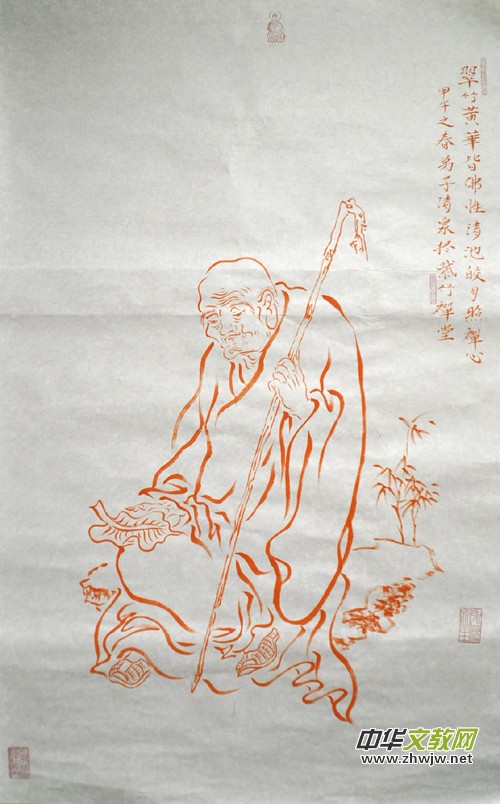 翠竹黄華皆佛性清池皎月照禅心
甲午之春弟子清泉於紫竹禅堂
中华文教网
www.zhwjw.net